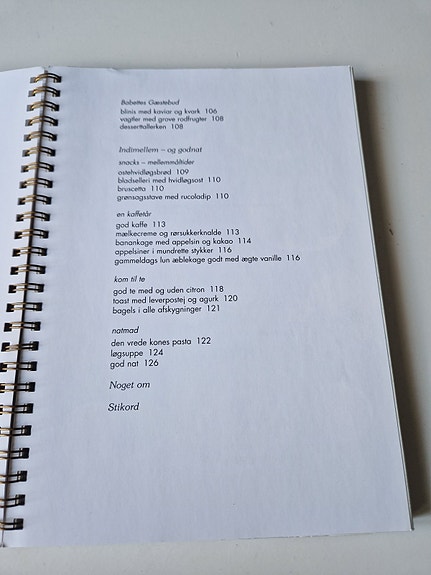 Babettes Gæstebud
blinis med kaviar og kvark 106
vagtler med grove rodfrugter 108
desserttallerken 108
Indimellem – og godnat
snacks – mellemmåltider
ostehvidløgsbrød 109
bladselleri med hvidløgsost 110
bruscetta 110
grønsagsstave med rucoladip 110
en kaffetår
god kaffe 113
mælkecreme og rørsukkerknalde 113
banankage med appelsin og kakao 114
appelsiner i mundrette stykker 116
gammeldags lun æblekage godt med ægte vanille 116
kom til te
god te med og uden citron 118
toast med leverpostej og agurk 120
bagels i alle afskygninger 121
natmad
den vrede kones pasta 122
løgsuppe 124
god nat 126
Noget om
Stikord